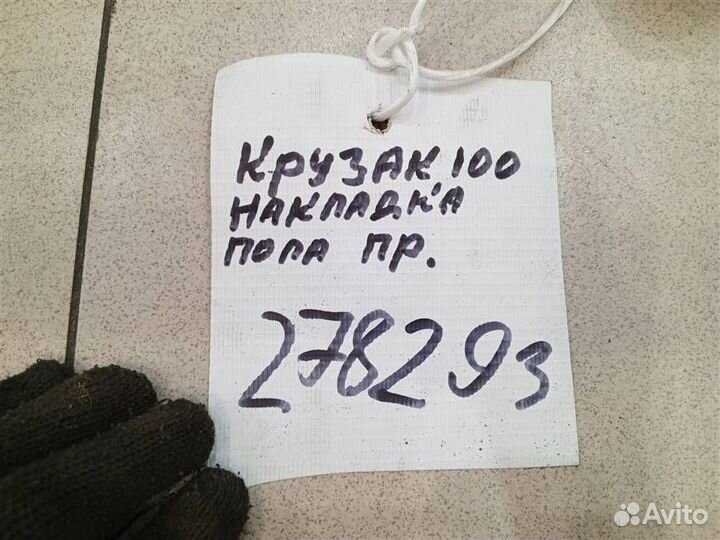 КРУЗАК 100
НАКЛАДКА
ПОЛА ПР.
278293
Avito